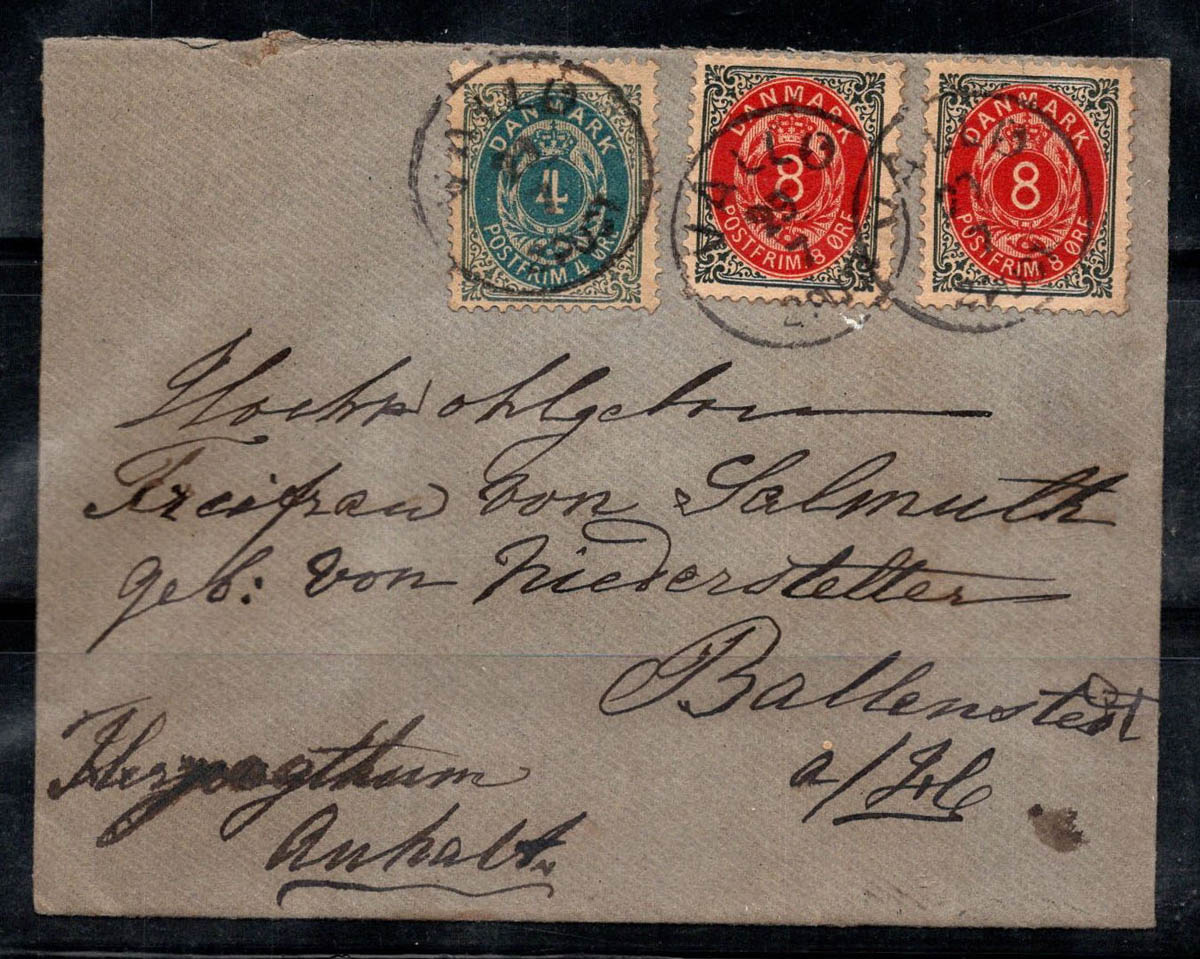 DANMARK
4
POSTFRIM 4 ØRE
DANMARK
8
POSTFRIM 8 ØRE
DANMARK
8
POSTFRIM 8 ØRE
VALLØ
VALLØ
29
7
Hochwohlgeborn
Freifrau von Salmuth
geb: von Niederstetter
Ballenstedt
a/
Herzogthum
Anhalt.